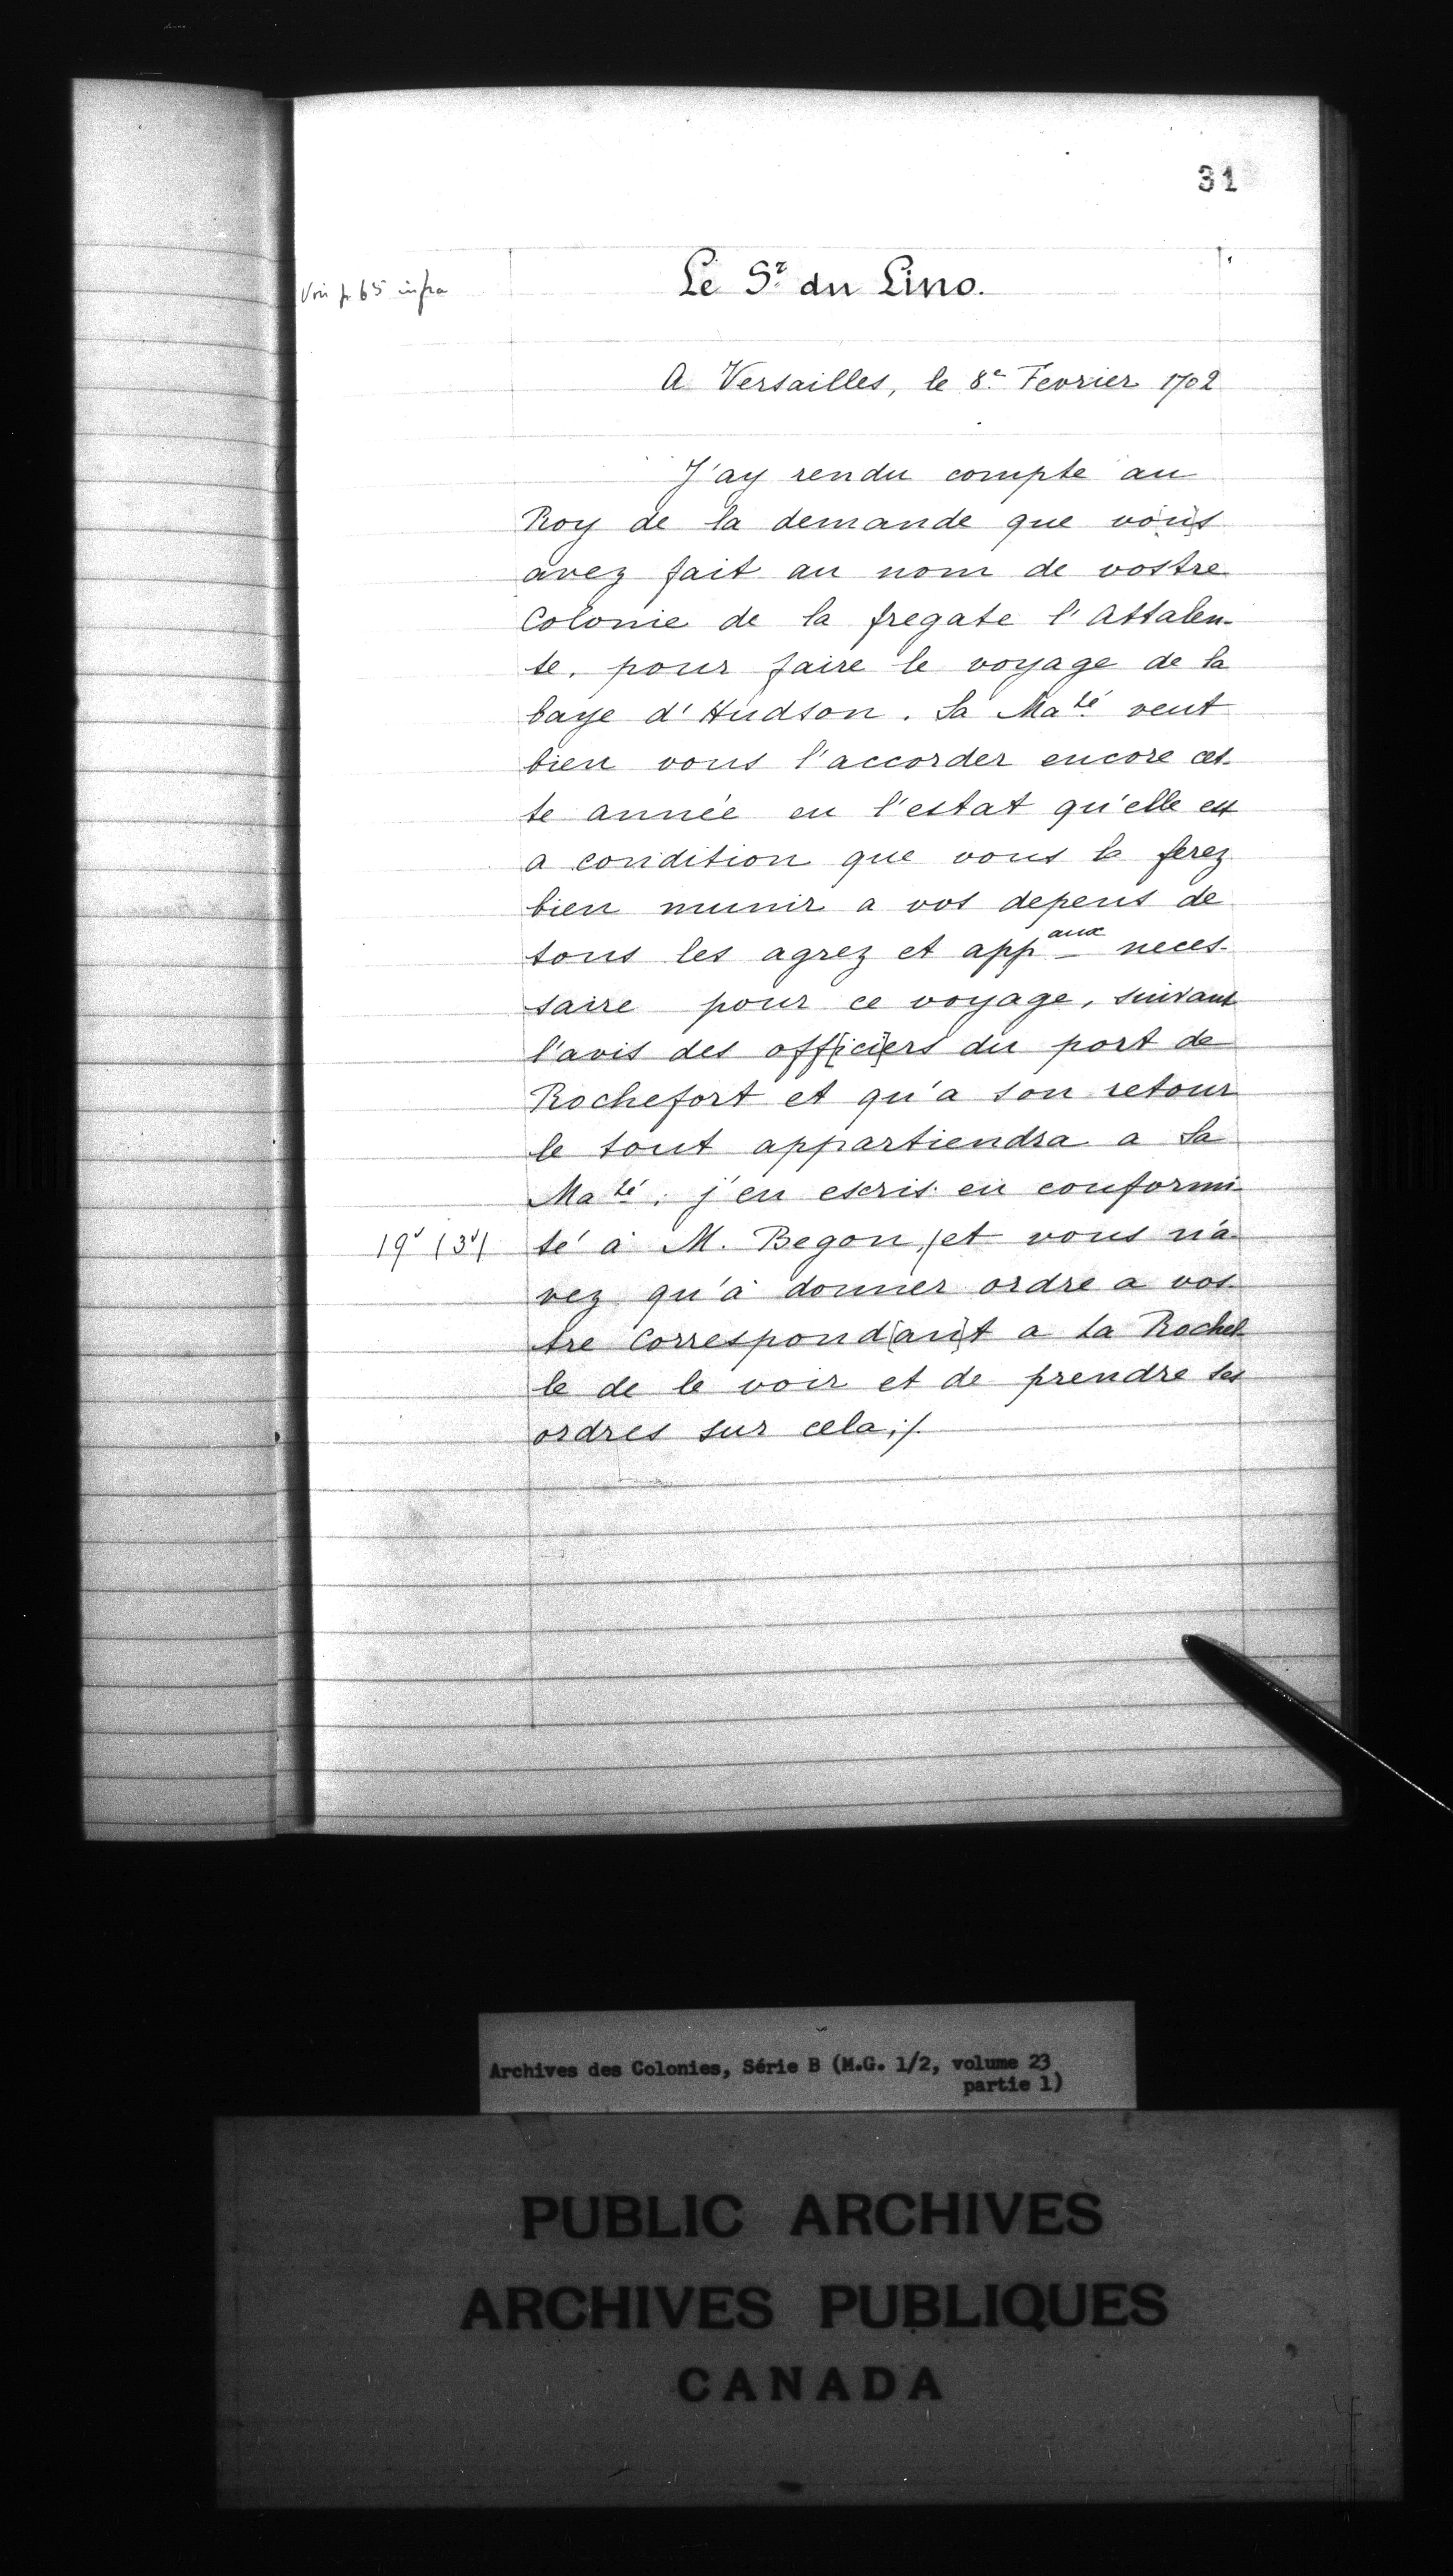 31
Voir p. 65 infra
Le Sr. du Lino.
A Versailles, le 8e Fevrier 1702
J'ay rendu compte au
Roy de la demande que vo[u]s
avez fait au nom de vostre
Colonie de la fregate l'Attalen-
te, pour faire le voyage de la
baye d'Hudson. Sa Maté veut
bien vous l'accorder encore cet-
te année en l'estat qu'elle est
a condition que vous la ferez
bien munir a vos depens de
tous les agrez et appaux neces-
saire pour ce voyage, suivant
l'avis des off[ici]ers du port de
Rochefort et qu'a son retour
le tout appartiendra a Sa
Maté. j'en escris en conformi-
19v (3v) té à M. Begon,/et vous n'a-
vez qu'à donner ordre a vos-
tre Correspond[an]t a la Rochel-
le de le voir et de prendre ses
ordres sur cela;/.
Archives des Colonies, Série B (M.G. 1/2, volume 23
partie 1)
PUBLIC ARCHIVES
ARCHIVES PUBLIQUES
CANADA